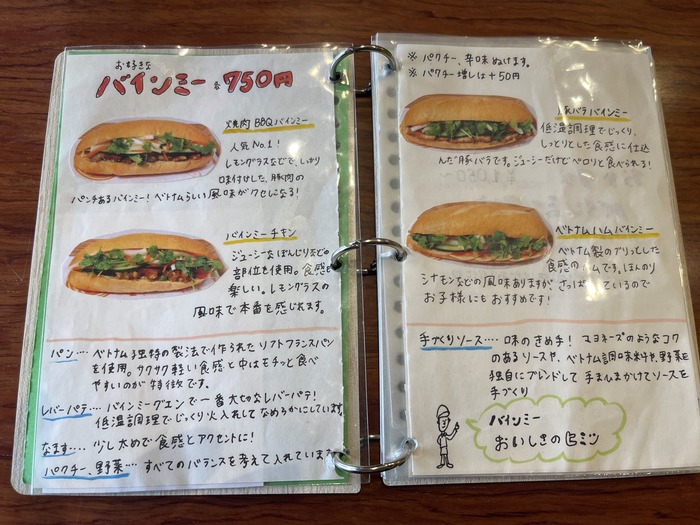 お好きな
バインミー 各750円
焼肉BBQバインミー
人気No.1!
レモングラスなどで、しっかり
味付けした、豚肉の
パンチあるバインミー!ベトナムらしい風味がクセになる!
バインミーチキン
ジューシーなぼんじりなどの
部位も使用。食感も
楽しい。レモングラスの
風味で本番を感じれます。
パン‥‥ベトナム独特の製法で作られたソフトフランスパン
を使用。サクサク軽い食感と中はモチッと食べ
やすいのが特徴です。
レバーパテ‥‥バインミーグエンで一番大切なレバーパテ!
低温調理でじっくり火入れしてなめらかにしています。
なます‥‥少し太めで食感とアクセントに!
パクチー、野菜‥‥すべてのバランスを考えて入れています
※パクチー、辛味ぬけます。
※パクチー増しは+50円
豚バラバインミー
低温調理でじっくり、
しっとりとした食感に仕込
んだ豚バラです。ジューシーだけどペロリと食べられる!
ベトナムハムバインミー
ベトナム製のプリっとした
食感のハムです。ほんのり
シナモンなどの風味ありますが、さっぱりしているので
お子様にもおすすめです!
手づくりソース‥‥味のきめ手!マヨネーズのようなコク
のあるソースや、ベトナム調味料や野菜を
独自にブレンドして手まひまかけてソースを
手づくり
バインミー
おいしさのヒミツ